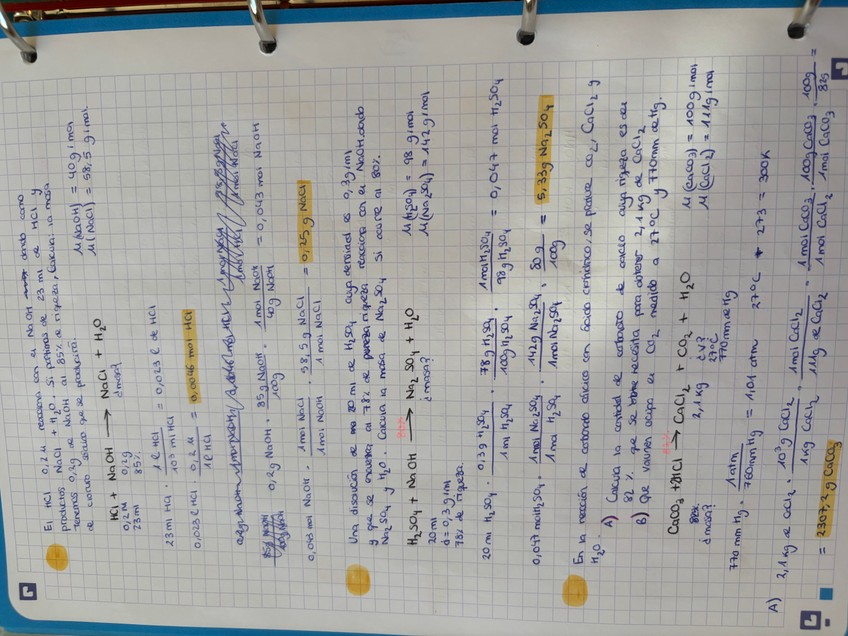 El HCl 0,2 M reacciona con el NaOH dando como
productos NaCl + H2O. Si partimos de 23 ml de HCl y
Tenemos 0,2g de NaOH al 85% de riqueza, Calcula la masa
de cloruro sódico que se producirá.
M(NaOH) = 40 g/mol
M(NaCl) = 58,5 g/mol.
HCl + NaOH → NaCl + H2O
0,2 M 0,2g ¿masa?
23 ml 85%
23 ml HCl · 1 l HCl / 10³ ml HCl = 0,023 l de HCl
0,023 l HCl · 0,2 M / 1 l HCl = 0,0046 mol HCl
0,2g NaOH · 85g NaOH / 100g · 1 mol NaOH / 40g NaOH = 0,043 mol NaOH
0,043 mol NaOH · 1 mol NaCl / 1 mol NaOH · 58,5 g NaCl / 1 mol NaCl = 0,25 g NaCl
Una disolución de 20 ml de H2SO4 cuya densidad es 0,3 g/ml
y que se encuentra al 78% de riqueza reacciona con el NaOH dando
Na2SO4 y H2O. Calcula la masa de Na2SO4 si ocurre al 80%.
M(H2SO4) = 98 g/mol
M(Na2SO4) = 142 g/mol
H2SO4 + NaOH → Na2SO4 + H2O
20 ml ¿masa?
d = 0,3 g/ml
78% de riqueza
20 ml H2SO4 · 0,3 g H2SO4 / 1 ml H2SO4 · 78 g H2SO4 / 100g H2SO4 · 1 mol H2SO4 / 98g H2SO4 = 0,047 mol H2SO4
0,047 mol H2SO4 · 1 mol Na2SO4 / 1 mol H2SO4 · 142 g Na2SO4 / 1 mol Na2SO4 · 80 g / 100g = 5,33g Na2SO4
En la reacción de carbonato cálcico con ácido clorhídrico, se produce CO2, CaCl2 y
H2O.
A) Calcula la cantidad de carbonato de calcio cuya riqueza es del
82 %. que se necesita para obtener 2,1 kg de CaCl2
B) Que volumen ocupa el CO2 medido a 27ºC y 770mm de Hg.
CaCO3 + 2HCl → CaCl2 + CO2 + H2O
¿masa? 2,1 kg ¿V?
27ºC
770 mm de Hg
M(CaCO3) = 100 g/mol
M(CaCl2) = 111 g/mol
770 mm Hg · 1 atm / 760 mm Hg = 1,01 atm 27ºC + 273 = 300K
A) 2,1 kg de CaCl2 · 10³ g CaCl2 / 1 kg CaCl2 · 1 mol CaCl2 / 111g de CaCl2 · 1 mol CaCO3 / 1 mol CaCl2 · 100g CaCO3 / 1 mol CaCO3 · 100g / 82g =
= 2307,2 g CaCO3